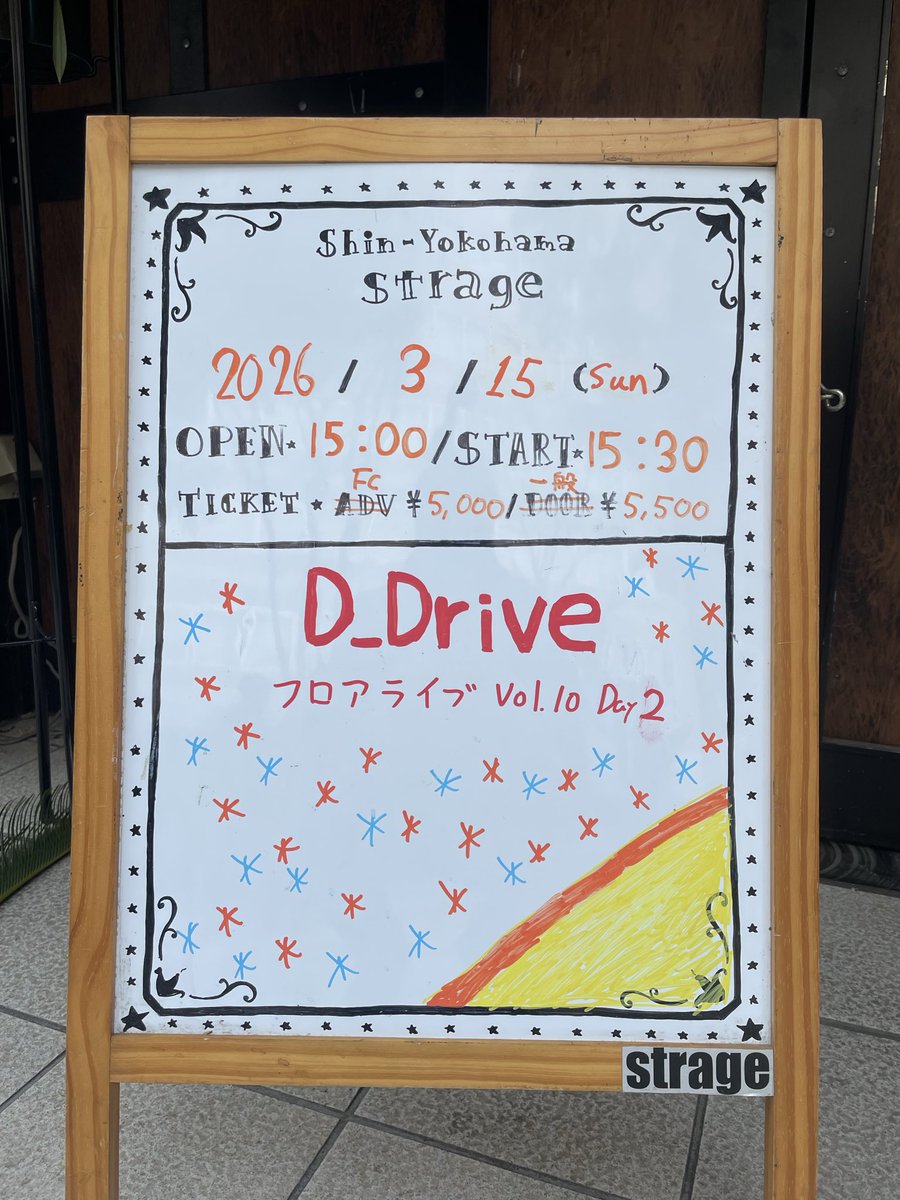 Shin-Yokohama
strage
2026 / 3 / 15 (Sun)
OPEN★ 15:00 / START★ 15:30
FC 一般
TICKET ★ ADV ¥5,000 / DOOR ¥5,500
D_Drive
フロアライブ Vol.10 Day2
strage